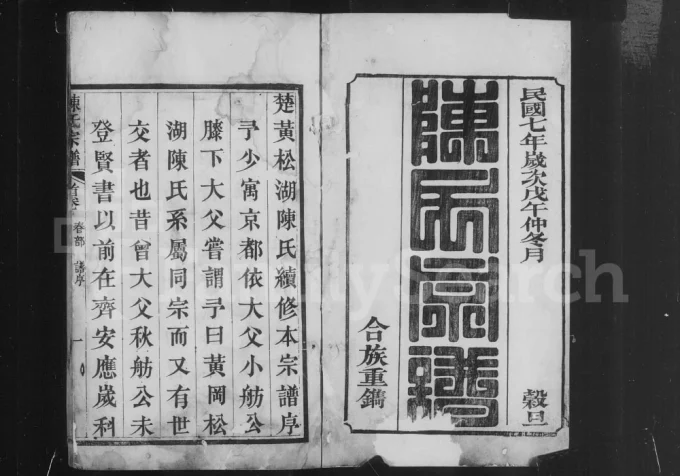 民國七年歲次戊午仲冬月
穀旦
陳氏宗譜
合族重鐫
楚黃松湖陳氏續修本宗譜序
予少寓京都依大父小舫公
膝下大父嘗謂予曰黃岡松
湖陳氏系屬同宗而又有世
交者也昔曾大父秋舫公未
登賢書以前在齊安應歲科
陳氏宗譜
首卷
春部
譜序
一
FamilySearch